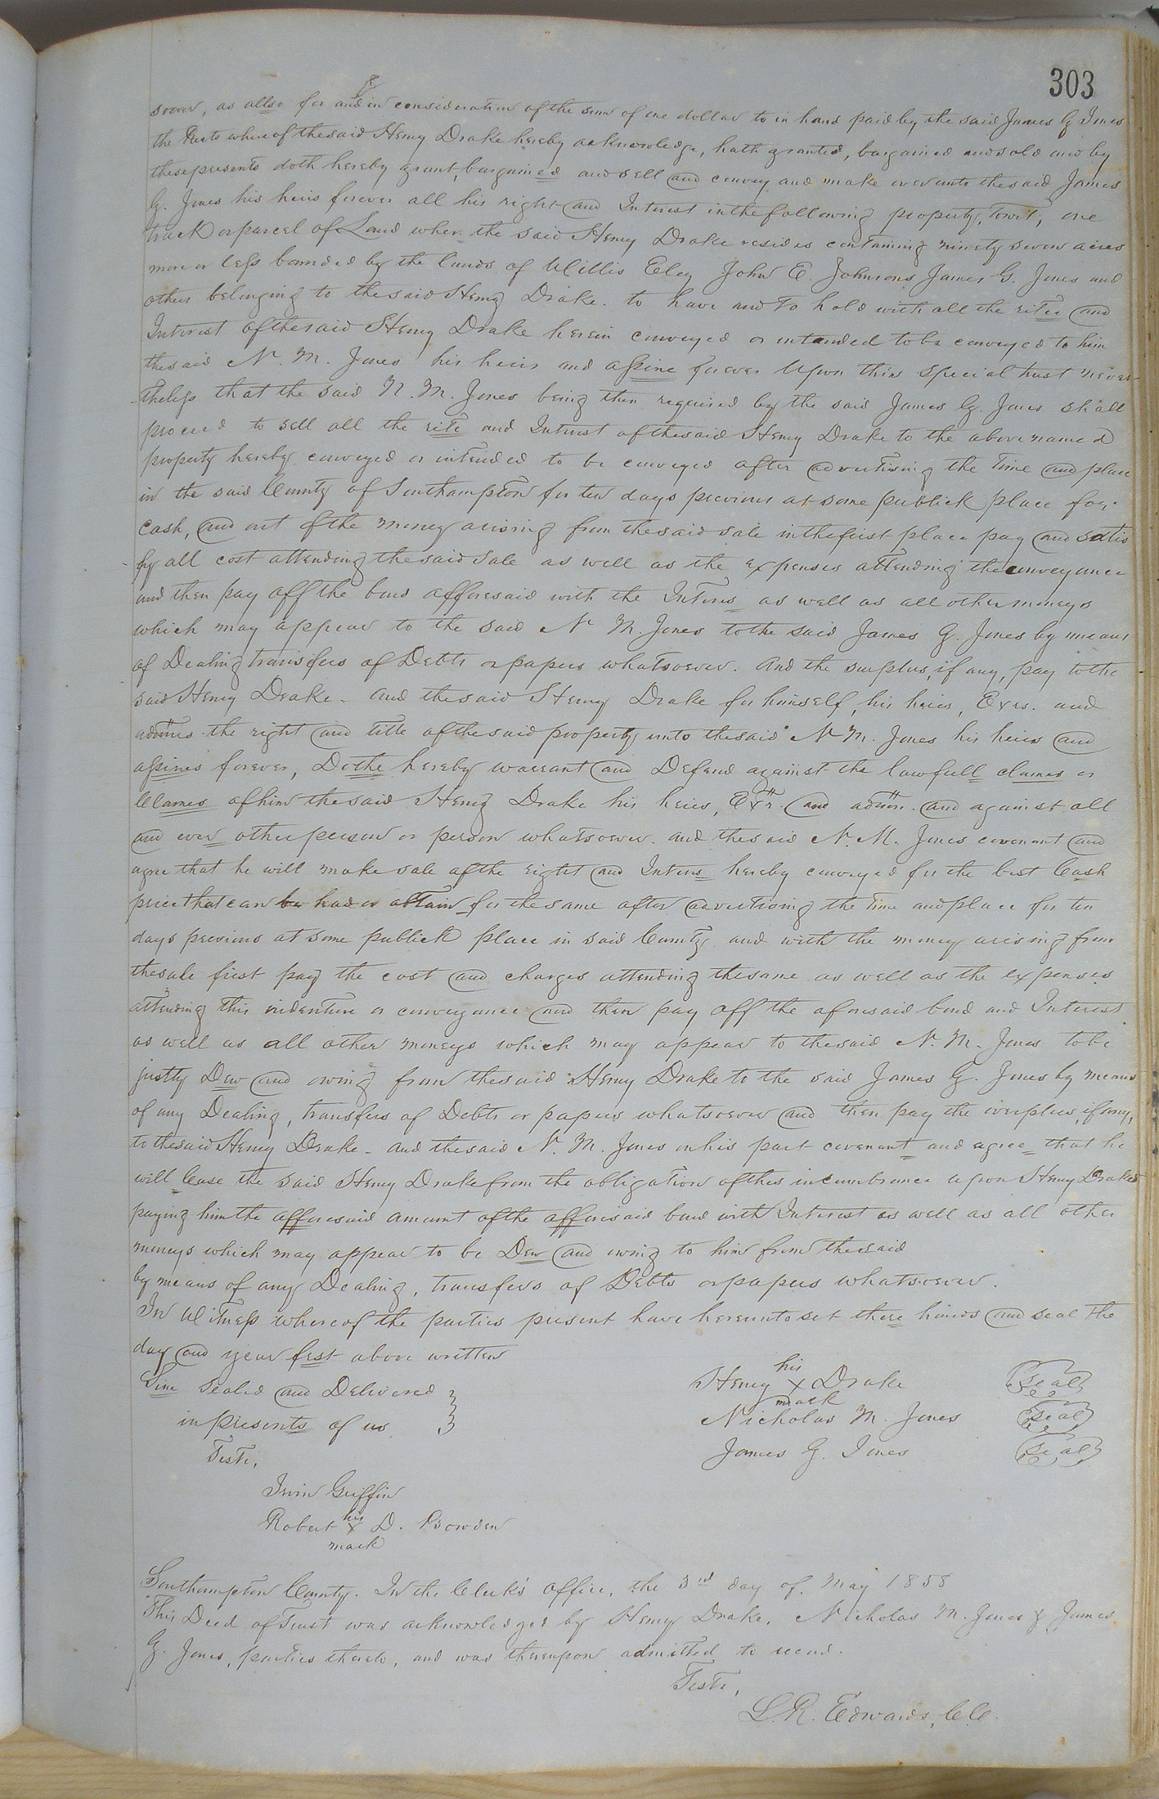 303
soever, as allso for and in consideration of the sum of one dollar to in hand paid by the said James G Jones
the Rects whereof the said Henry Drake hereby acknowledge, hath granted, bargained and sold and by
these presents doth hereby grant, bargained and sell and convey and make over unto the said James
G. Jones his heirs forever all his right and Interest in the following property, towit, one
track or parcel of Land wher the said Henry Drake resides containing ninety seven acres
more or less bounded by the lands of Willis Eley John E Johnsons James G. Jones and
others belonging to the said Henry Drake. to have and to hold with all the rite and
Interest of the said Henry Drake herein conveyed or intended to be conveyed to him
the said N. M. Jones his heirs and assine forever Upon this special trust never-
theless that the said N. M. Jones being then required by the said James G. Jones shall
proceed to sell all the rite and Interest of the said Henry Drake to the above named
property hereby conveyed or intended to be conveyed after advertising the time and place
in the said County of Southampton for ten days previous at some publick place for
cash, and out of the money arising from the said sale in the first place pay and satis
fy all cost attending the said sale as well as the expenses attending the conveyance
and then pay off the bond afforesaid with the Interes as well as all other moneys
which may appear to the said N M. Jones to the said James G. Jones by means
of Dealing transfers of Debts or papers whatsoever. And the surplus, if any, pay to the
said Henry Drake. And the said Henry Drake for himself, his heirs, Exrs. and
admrs the right and title of the said property unto the said N M. Jones his heirs and
assines forever, Dothe hereby warrant and Defend against the lawfull claimes or
Clames of him the said Henry Drake his heirs, Exr. and admr. and against all
and ever other person or person whatsoever. and the said N. M. Jones covenant and
agree that he will make sale of the right and Interes hereby conveyed for the best Cash
price that can be had or obtain for the same after advertising the time and place for ten
days previous at some publick place in said County and with the money arising from
the sale first pay the cost and charges attending the same as well as the expenses
attending this indenture or conveyance and then pay off the aforesaid bond and Interest
as well as all other moneys which may appear to the said N. M. Jones to be
justly Due and owing from the said Henry Drake to the said James G. Jones by means
of any Dealing, transfers of Debts or papers whatsoever and then pay the overplus, if any,
to the said Henry Drake. And the said N. M. Jones on his part covenant and agree that he
will lease the said Henry Drake from the obligation of this incumbrance upon Henry Drakes
paying him the afforesaid amount of the afforesaid bond with Interest as well as all other
moneys which may appear to be Dew and owing to him from the said
by means of any Dealing, transfers of Debts or papers whatsoever.
In Witness whereof the parties present have hereunto set there hands and seal the
day and year fest above written
Sine Sealed and Delivered
in presents of us
Teste,
his
Henry X Drake Seal
mark
Nicholas M. Jones Seal
James G. Jones Seal
Irvin Griffin
his
Robert X D. Bowden
mark
Southampton County. In the Clerk's office, the 3rd day of May 1858
This Deed of Trust was acknowledged by Henry Drake, Nicholas M. Jones & James
G. Jones, parties thereto, and was thereupon admitted to record.
Teste,
L. R. Edwards, C.C.